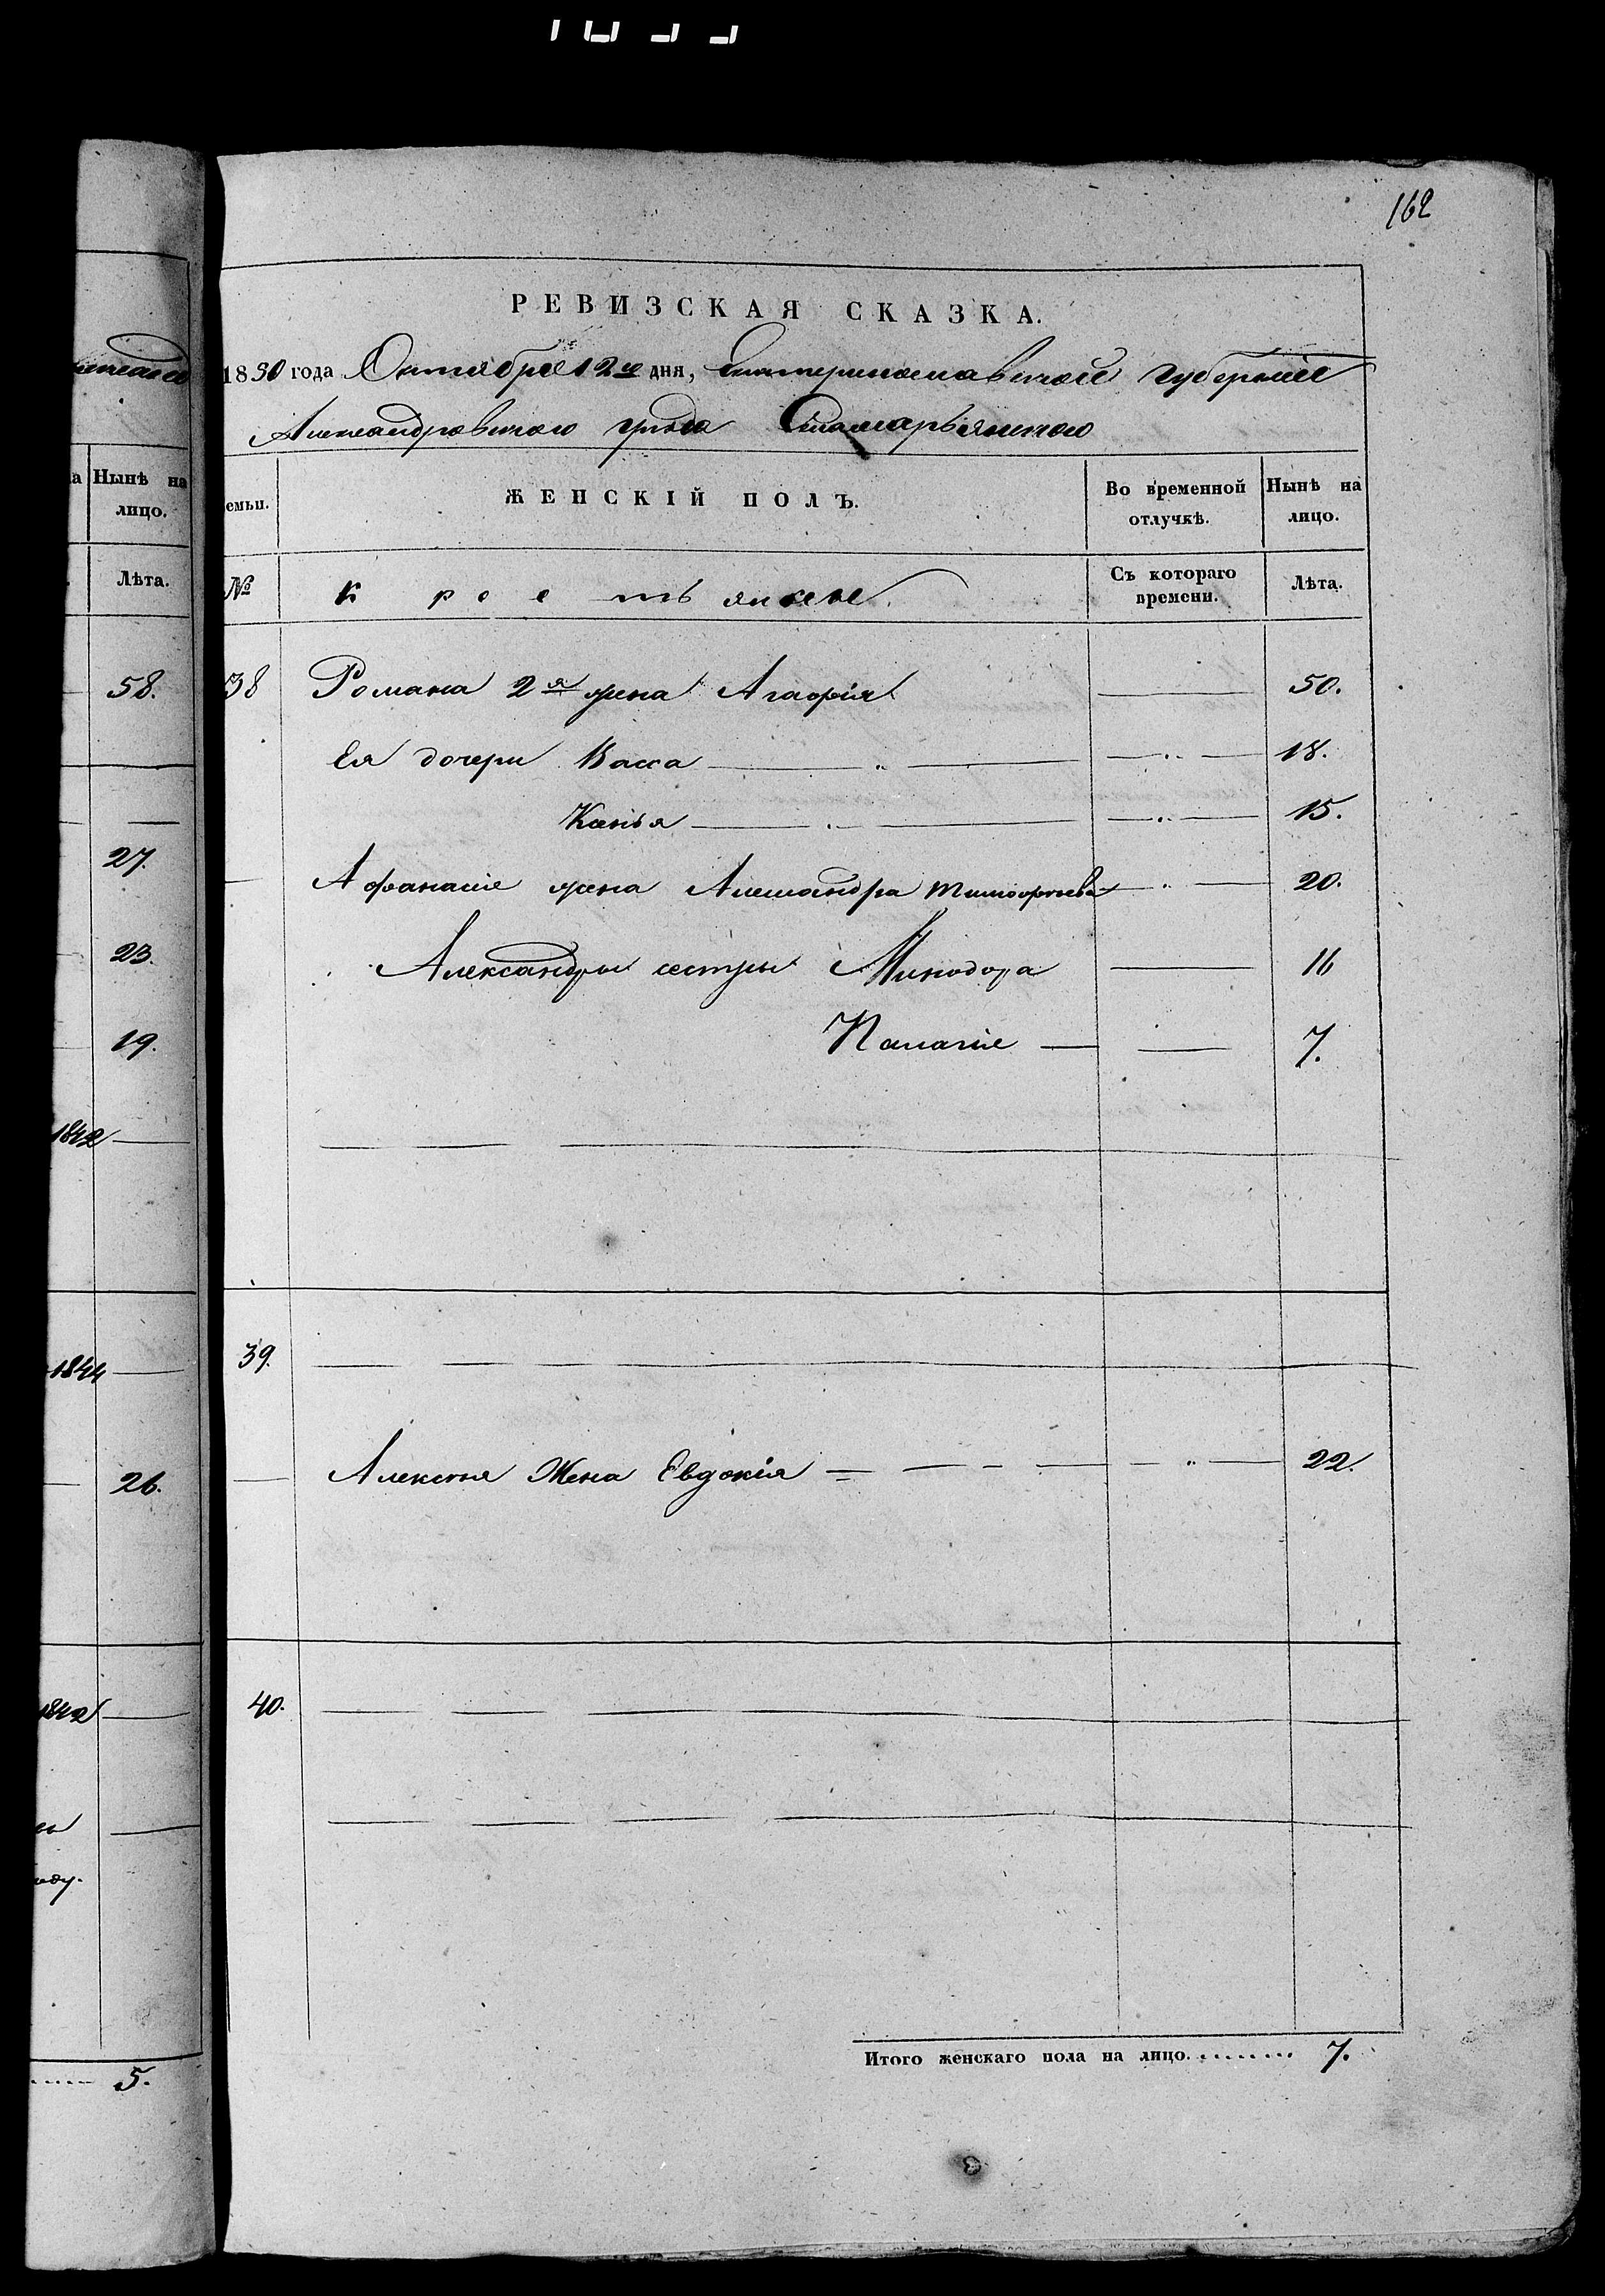 162
на
Нынѣ на
лицо.
Лѣта.
58.
27.
23.
19.
1842
1844
26.
1842
ду.
5.
РЕВИЗСКАЯ СКАЗКА.
1850 года Октября 12го дня, Екатеринославской губерніи
Александровского уѣзда Старомарьевского
емьи.
ЖЕНСКІЙ ПОЛЪ.
Во временной отлучкѣ.
Нынѣ на лицо.
№
крестьянъ
Съ котораго времени.
Лѣта.
38 Романа 2я жена Агафія 50.
Ея дочери Васса 18.
Ксенья 15.
Афанасія жена Александра Тимофеева 20.
Александры сестры Минодора 16
Палагія 7.
39.
Алексѣя Жена Евдокія 22.
40.
Итого женскаго пола на лицо. 7.